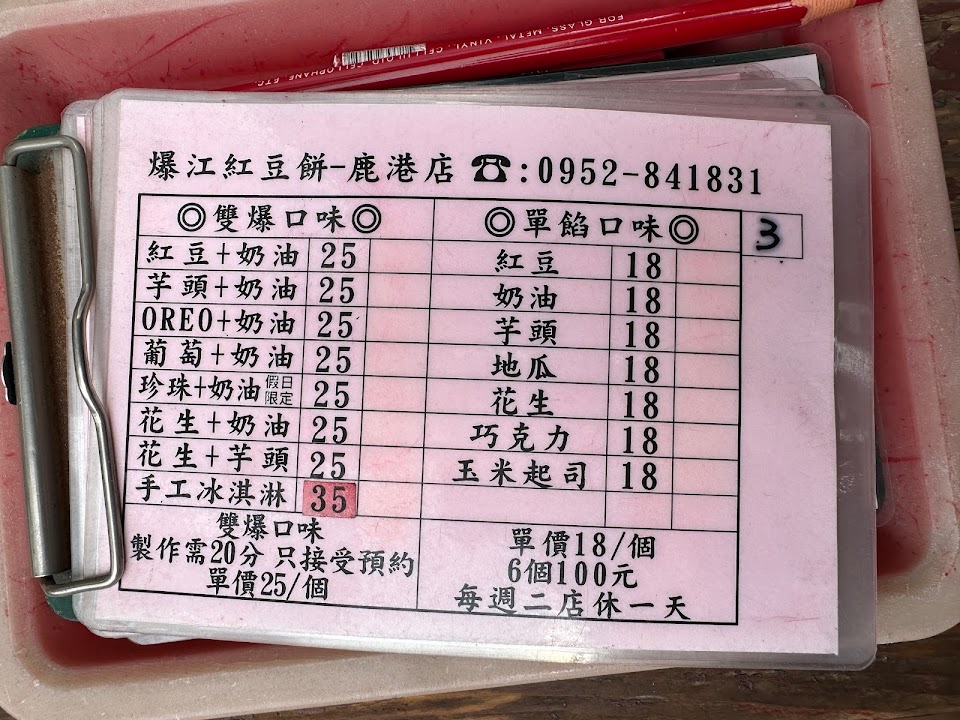 FOR GLASS, METAL, VINYL, CELLULOID CELLOPHANE, ETC.
爆江紅豆餅-鹿港店 ☎:0952-841831
◎雙爆口味◎ ◎單餡口味◎ 3
紅豆+奶油 25 紅豆 18
芋頭+奶油 25 奶油 18
OREO+奶油 25 芋頭 18
葡萄+奶油 25 地瓜 18
珍珠+奶油 假日限定 25 花生 18
花生+奶油 25 巧克力 18
花生+芋頭 25 玉米起司 18
手工冰淇淋 35
雙爆口味
製作需20分 只接受預約
單價25/個
單價18/個
6個100元
每週二店休一天